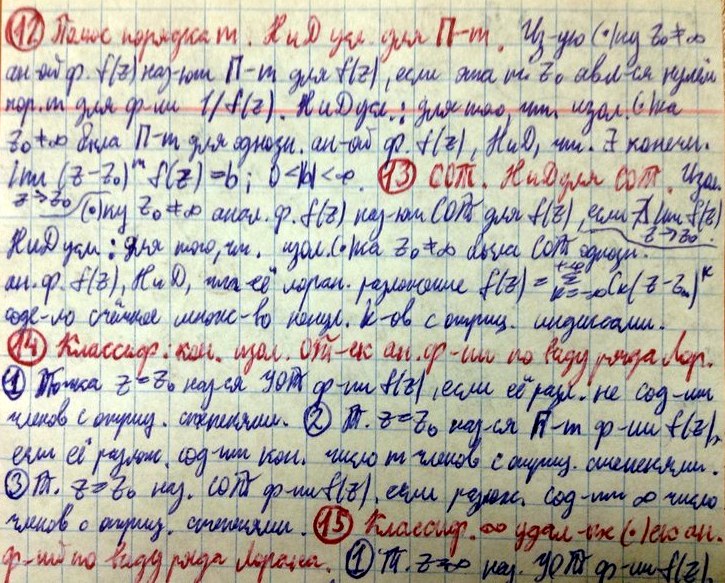 ⑫ Полюс порядка m. НиД усл. для П-m. Из-ую (•)ку z₀≠∞
ан-ой ф. f(z) наз-ют П-m для f(z), если эта т. z₀ явл-ся нулём
пор. m для ф-ии 1/f(z). НиД усл.: для того, чт. изол. (•)ка
z₀≠∞ была П-m для однозн. ан-ой ф. f(z), НиД, чт. ∃ конечн.
lim (z-z₀)ᵐ f(z)=b; 0<|b|<∞. ⑬ СОТ. НиД для СОТ. Изол.
z→z₀ (•)ку z₀≠∞ анал. ф. f(z) наз-ют СОТ для f(z), если ∄ lim f(z) z→z₀.
НиД усл.: для того, чт. изол. (•)ка z₀≠∞ была СОТ однозн.
ан. ф. f(z), НиД, её лоран. разложение f(z)= +∞ Σ k=-∞ Cₖ(z-z₀)ᵏ
соде-ло счётное множ-во ненул. к-ов с отриц. индексами.
⑭ Классиф. кон. изол. ОТ-ек ан. ф-ии по виду ряда Лор.
① Точка z=z₀ наз-ся УОТ ф-ии f(z), если её разл. не сод-ит
членов с отриц. степенями. ② Т. z=z₀ наз-ся П-m ф-ии f(z),
если её разлож. сод-ит кон. число m членов с отриц. степенями.
③ Т. z=z₀ наз. СОТ ф-ии f(z), если разлож. сод-ит ∞ число
членов с отриц. степенями. ⑮ Классиф. ∞ удал-ых (•)ек ан.
ф-ий по виду ряда Лорана. ① Т. z=∞ наз. УОТ ф-ии f(z)